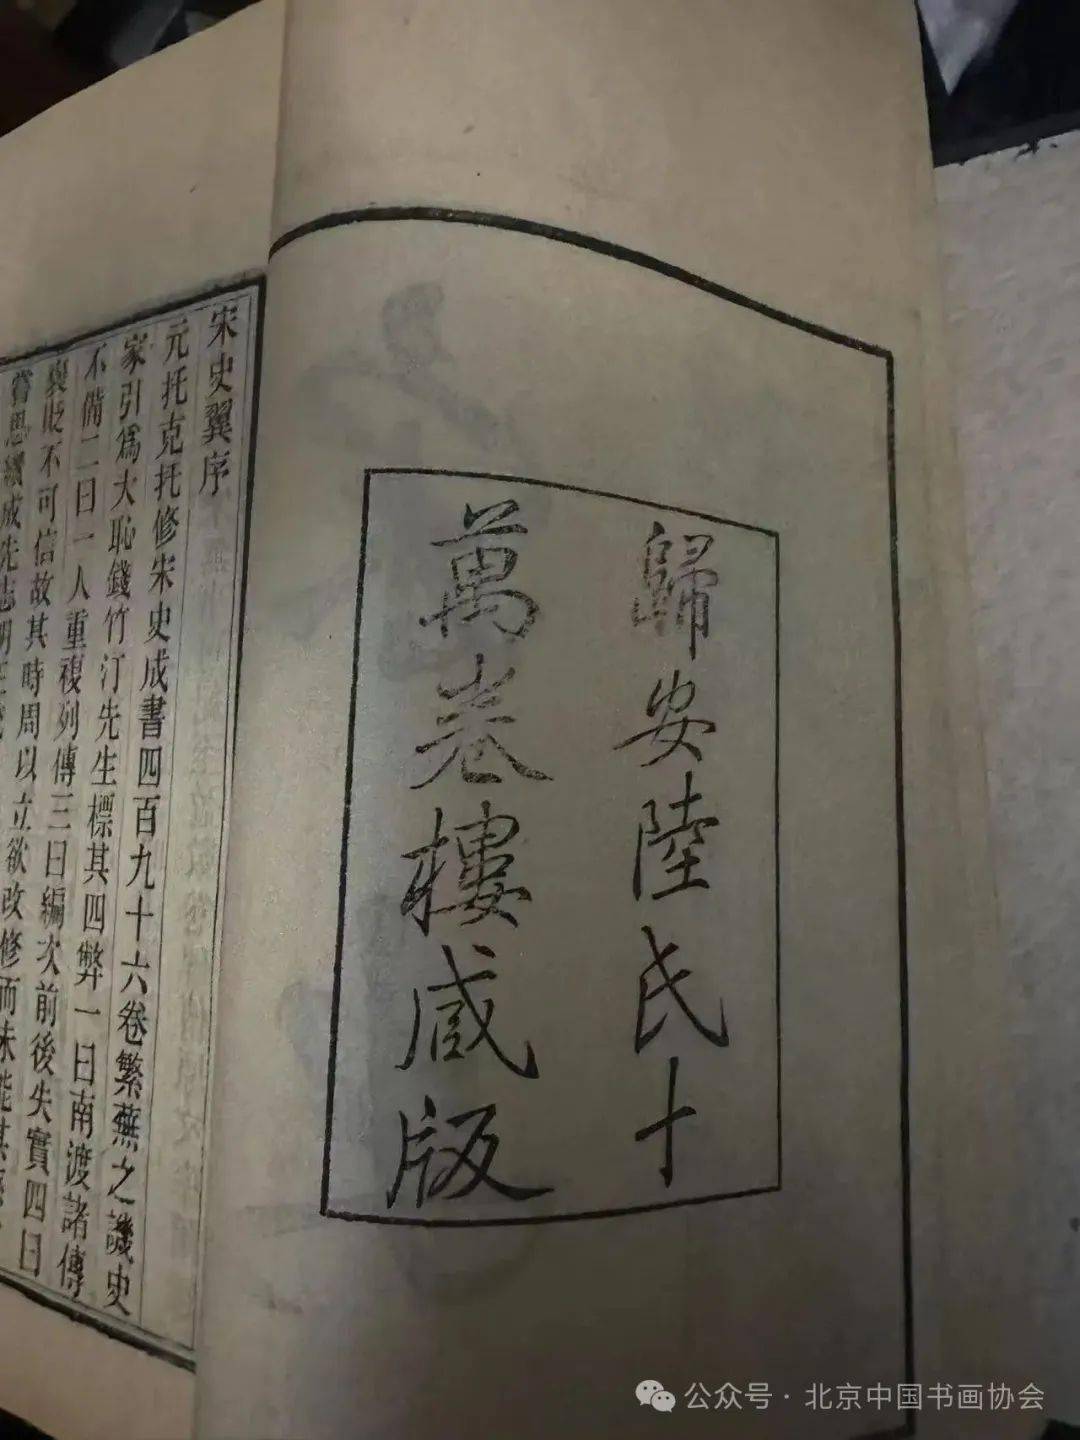 歸安陸氏十
萬卷樓臧版
宋史翼序
元托克托修宋史成書四百九十六卷繁蕪之譏史
家引爲大恥錢竹汀先生標其四弊一曰南渡諸傳
不備二曰一人重複列傳三曰編次前後失實四曰
襃貶不可信故其時周以立欲改修而未能其
嘗思續成先志明
公众号·北京中国书画协会